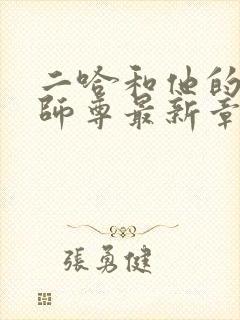 二哈和他的
師尊最新章
張勇健